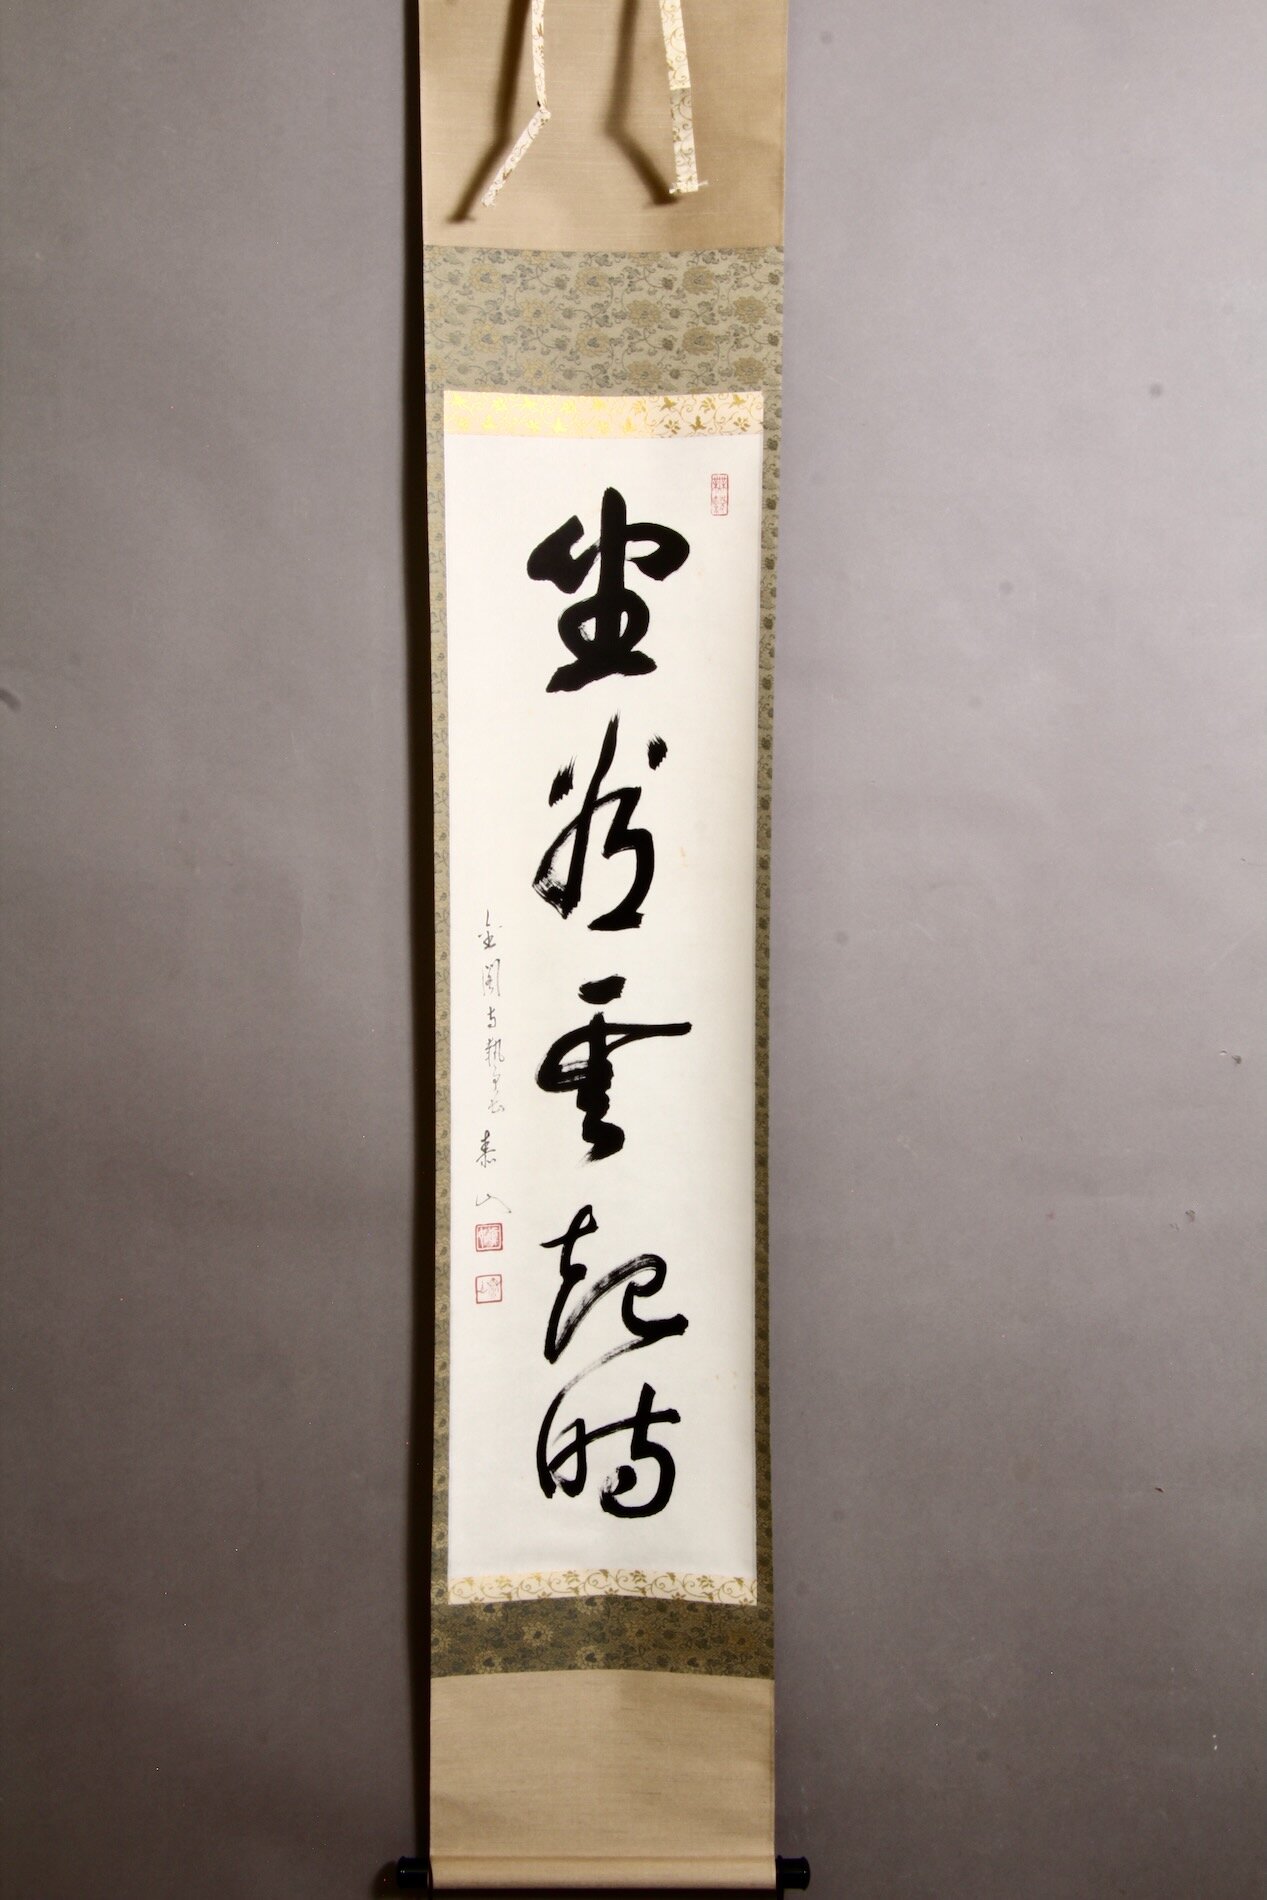 坐看雲起時
金閣寺執事長 泰山